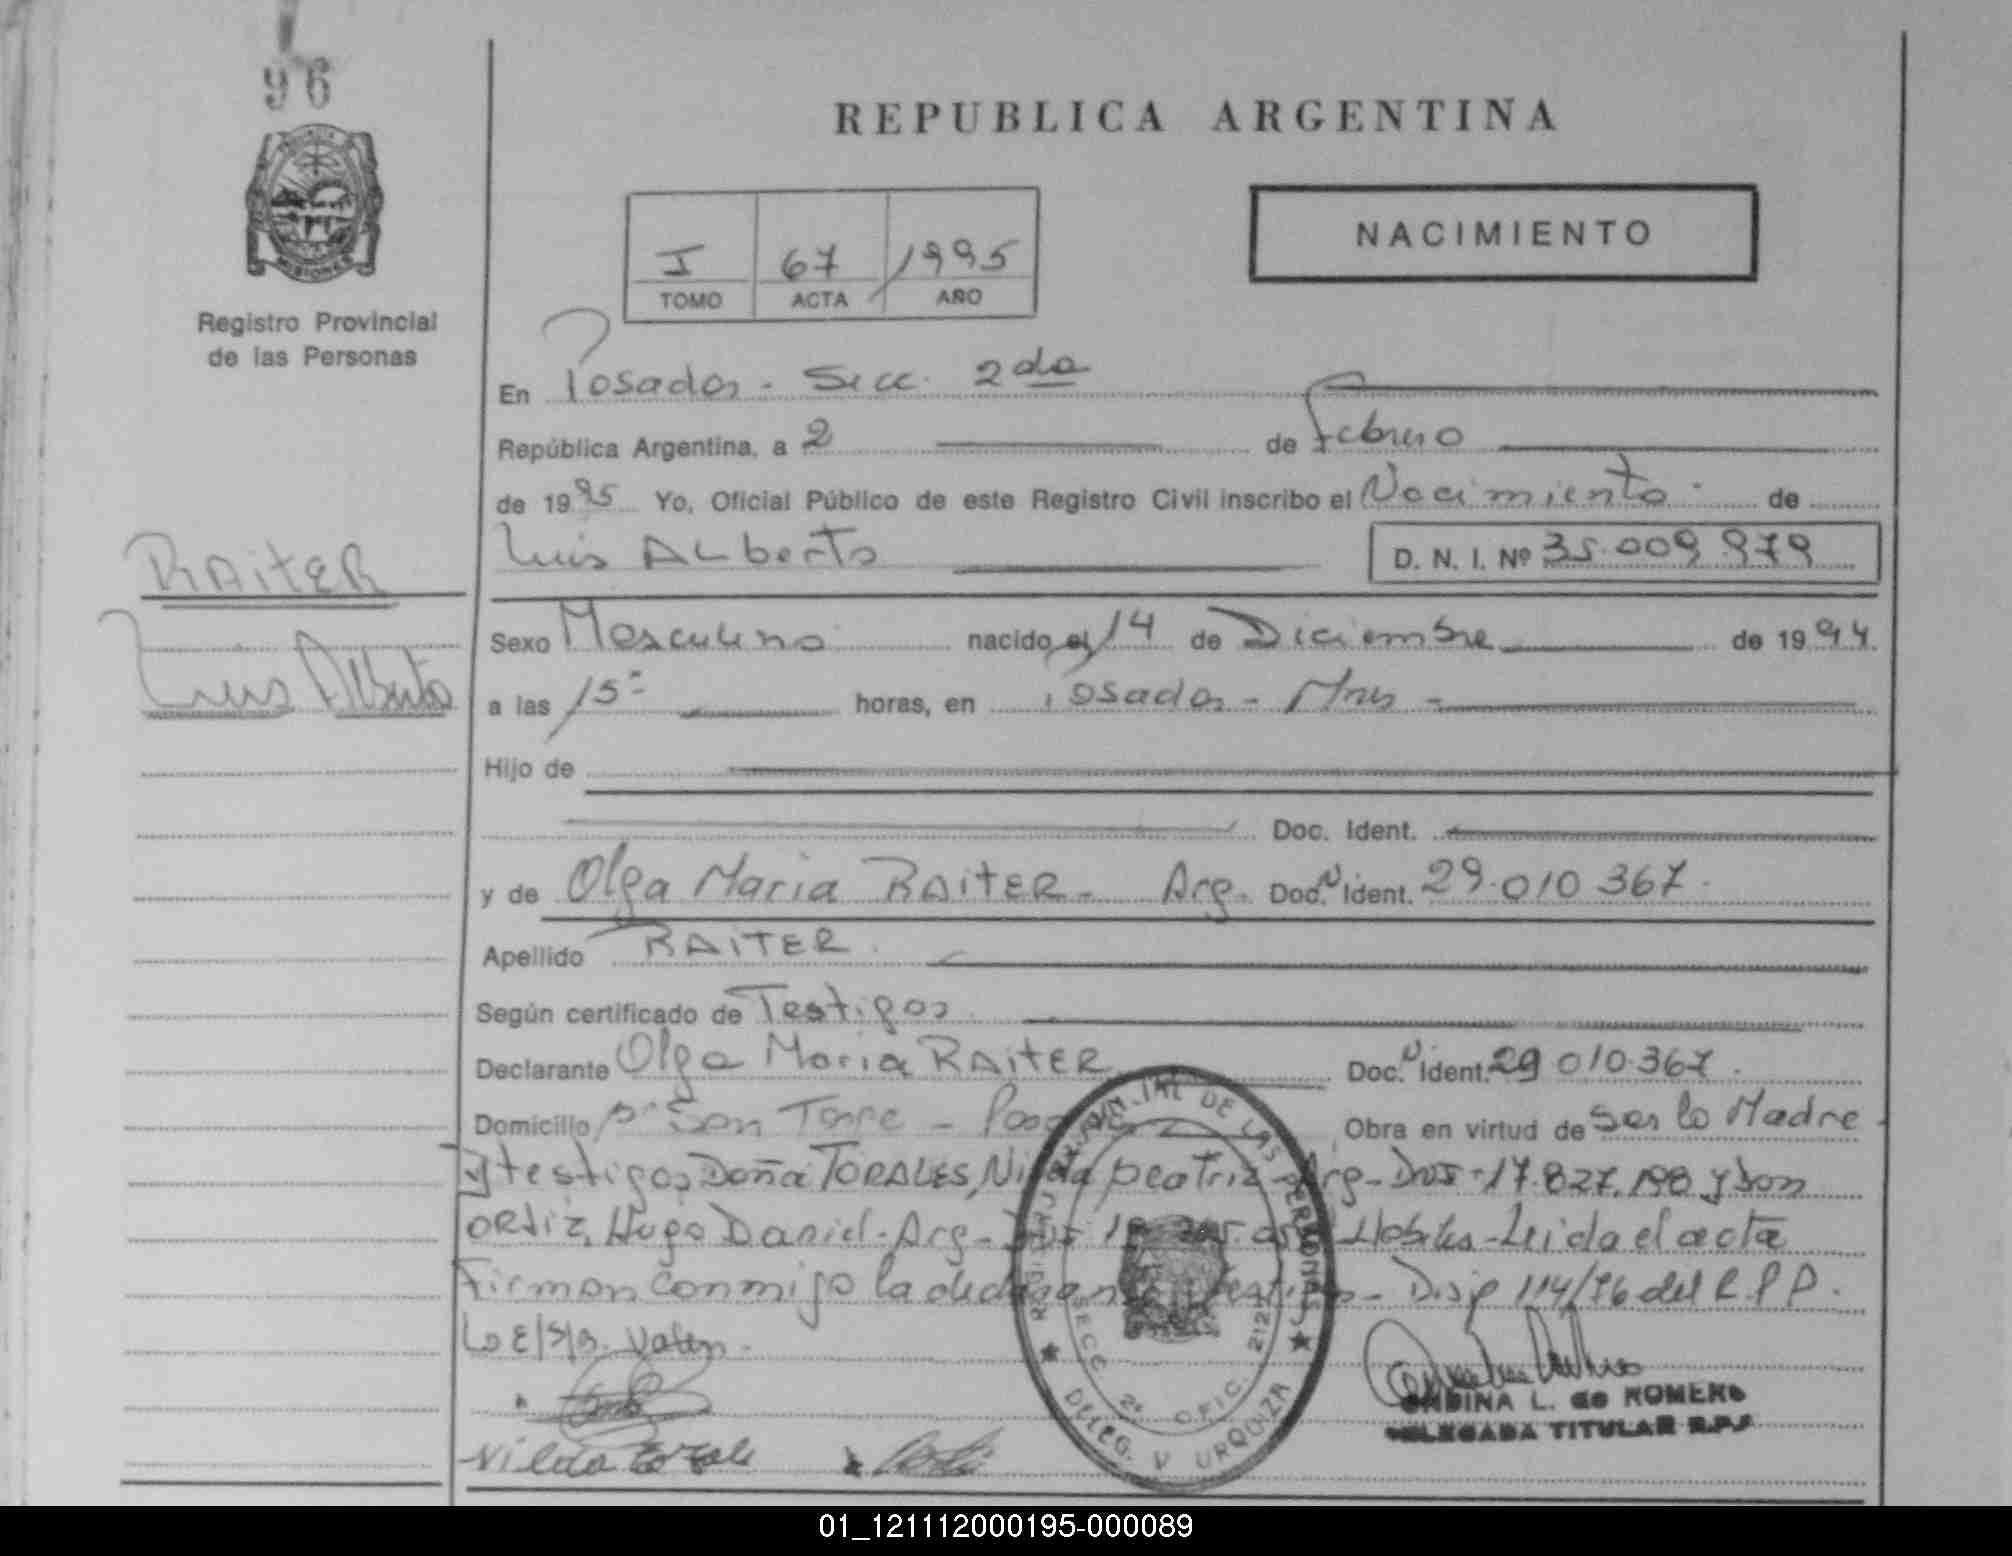 96
REPUBLICA ARGENTINA
NACIMIENTO
I 67 1995
TOMO ACTA AÑO
MISIONES
Registro Provincial
de las Personas
En Posadas - Secc. 2da
República Argentina, a 2 de Febrero
de 1995 Yo, Oficial Público de este Registro Civil inscribo el Nacimiento de
Luis ALberto D. N. I. Nº 35.009.979
RAiTER
Luis Alberto
Sexo Masculino nacido el 14 de Diciembre de 1994.
a las 15= horas, en Posadas - Mnes -
Hijo de
Doc. Ident.
y de Olga Maria RAiTER - Arg. Doc. N Ident. 29.010 367.
Apellido RAiTER.
Según certificado de Testigos
Declarante Olga Maria RAiTER Doc. N Ident. 29 010.367.
Domicilio San Posadas Obra en virtud de Ser la Madre -
y testigos Doña TORALES, Nilda beatriz - Arg - DNI - 17.827.198 y Don
ORtiz, Hugo Daniel - Arg - Habiles - Leida el acta
Firman conmigo la declarante testigos - Disp 114/76 del R.P.P.
Lo E/S/B. Valen -
REGISTRO PROVINCIAL DE LAS PERSONAS
SECC. 2ª OFIC. 212
DELEG. V URQUIZA
ONDINA L. de ROMERO
DELEGADA TITULAR R.P.P.
Nilda Torales
01_121112000195-000089